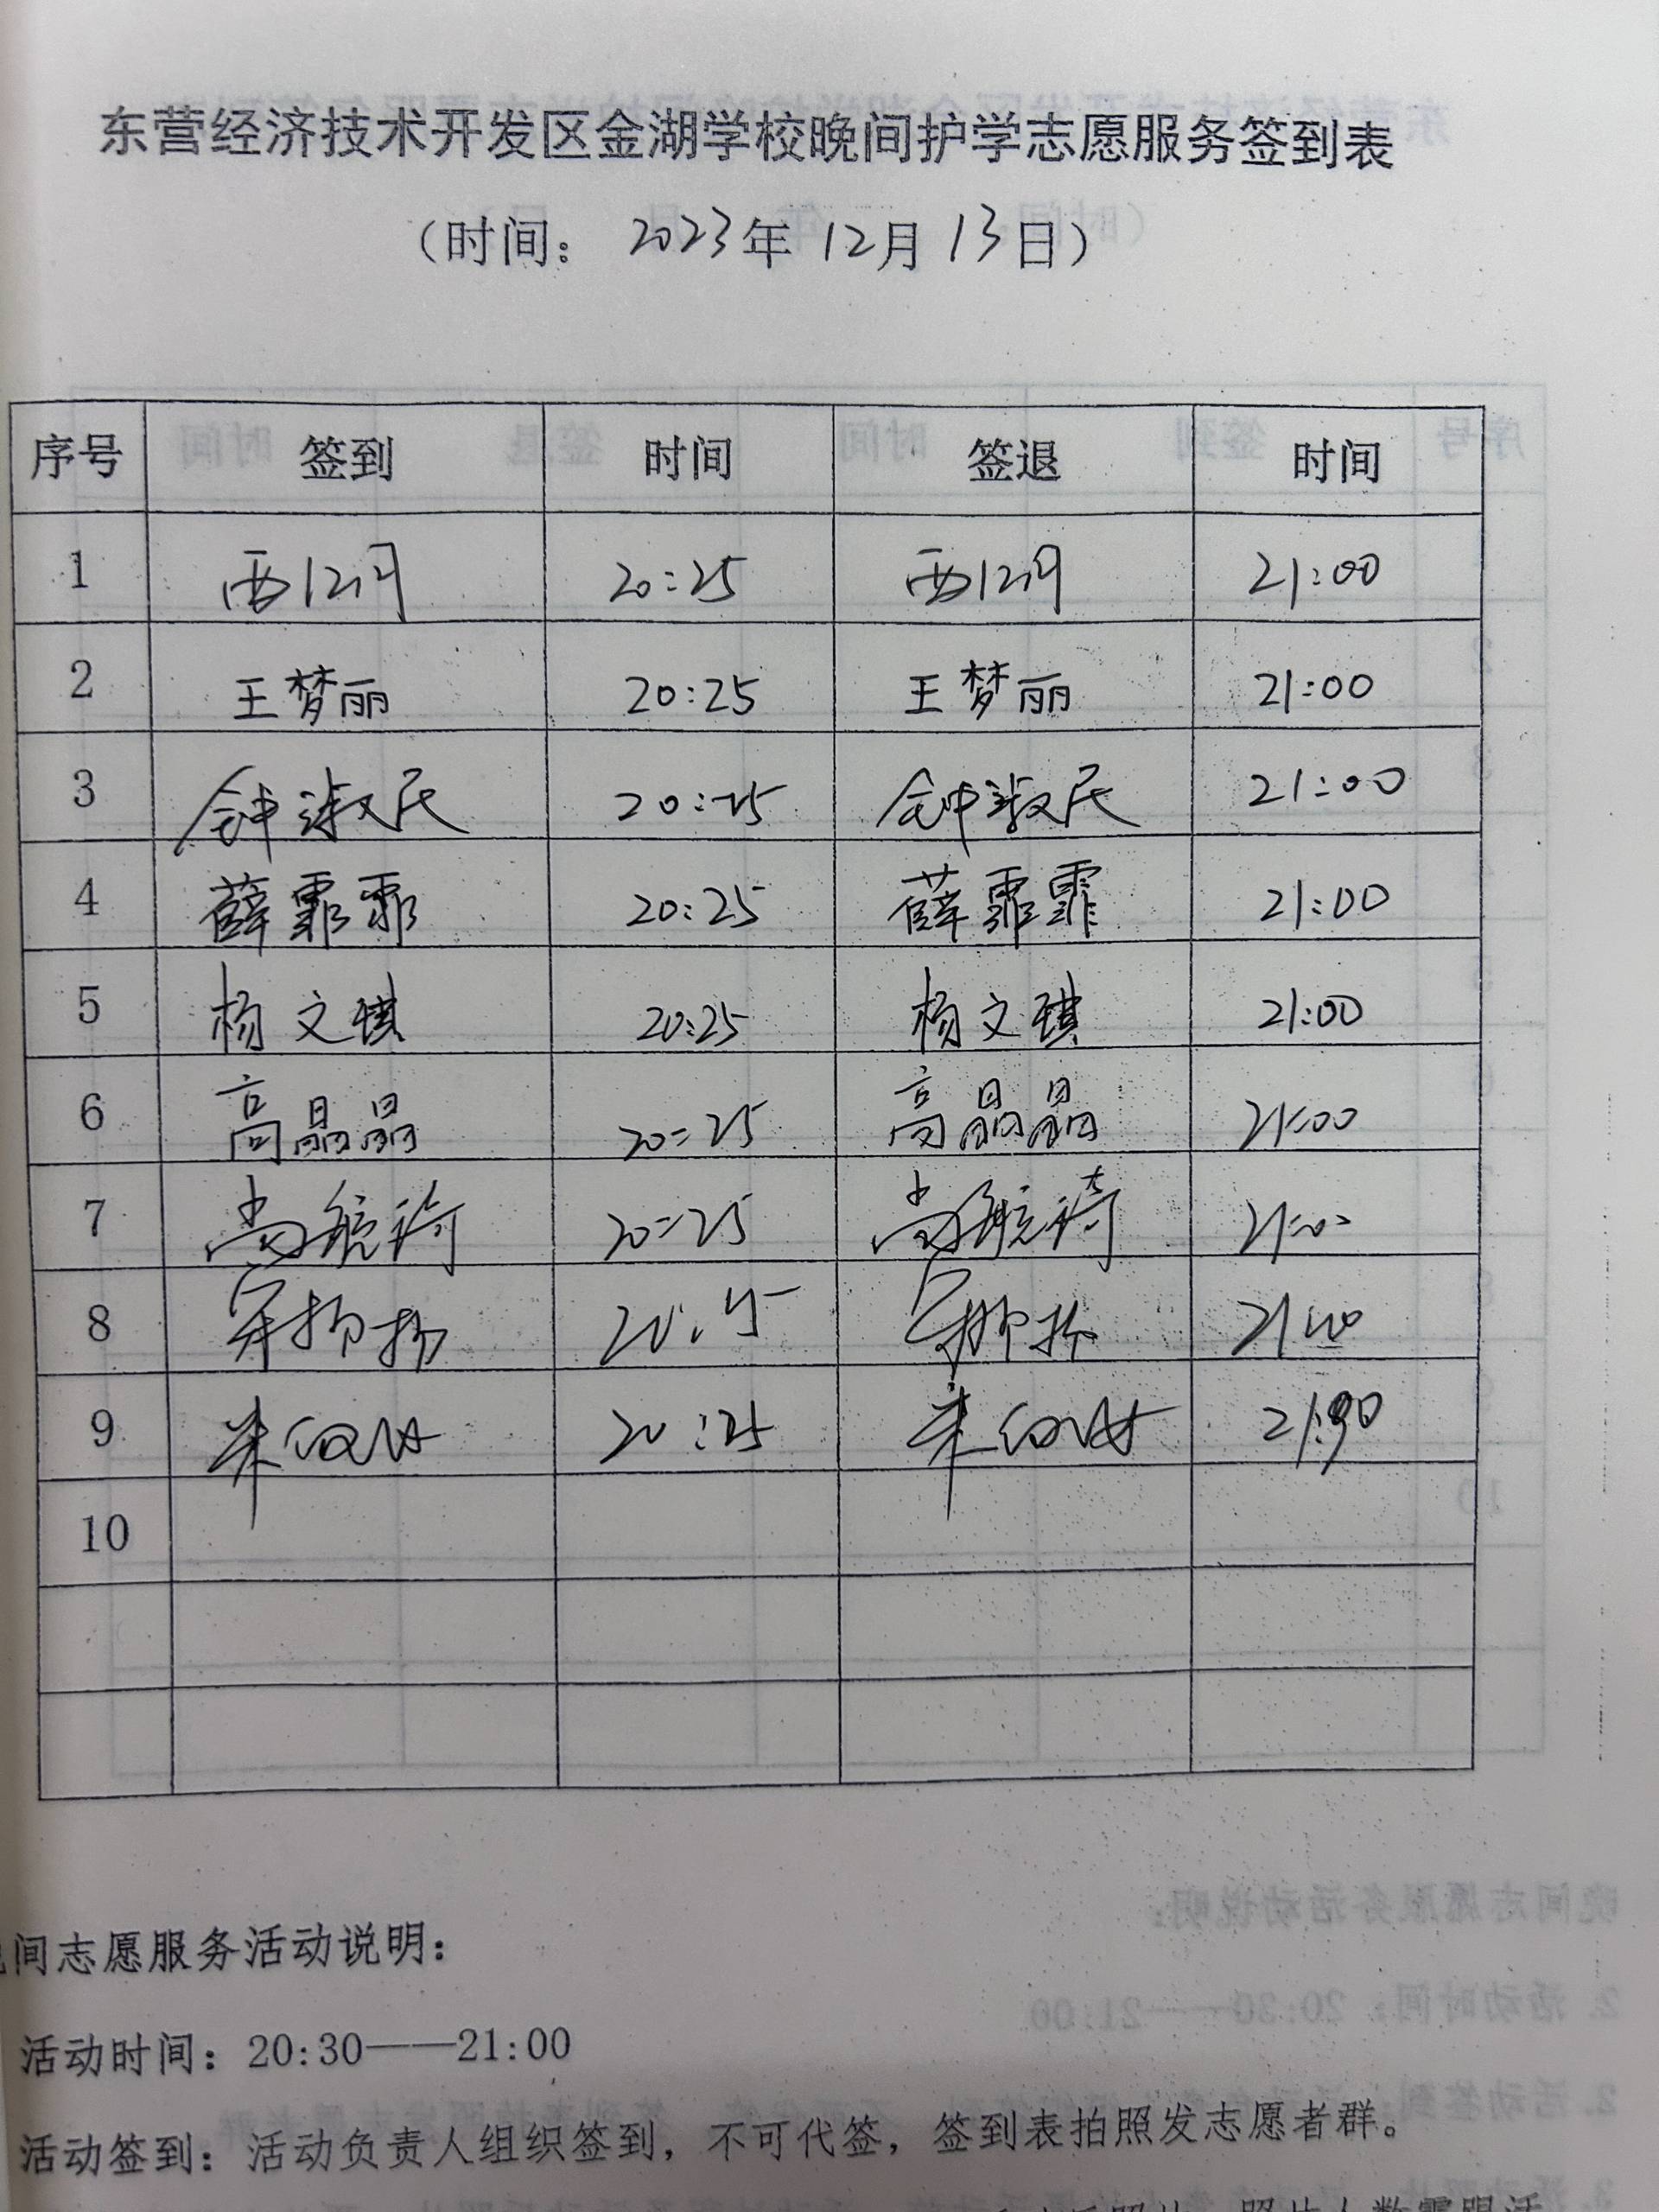 东营经济技术开发区金湖学校晚间护学志愿服务签到表
（时间：2023年12月13日）
序号 签到 时间 签退 时间
1 20:25 21:00
2 王梦丽 20:25 王梦丽 21:00
3 钟淑民 20:25 钟淑民 21:00
4 薛霏霏 20:25 薛霏霏 21:00
5 杨文琪 20:25 杨文琪 21:00
6 高晶晶 20:25 高晶晶 21:00
7 尚航琦 20:25 尚航琦 21:00
8 20:25 21:00
9 20:25
10
间志愿服务活动说明：
活动时间：20:30——21:00
活动签到：活动负责人组织签到，不可代签，签到表拍照发志愿者群。